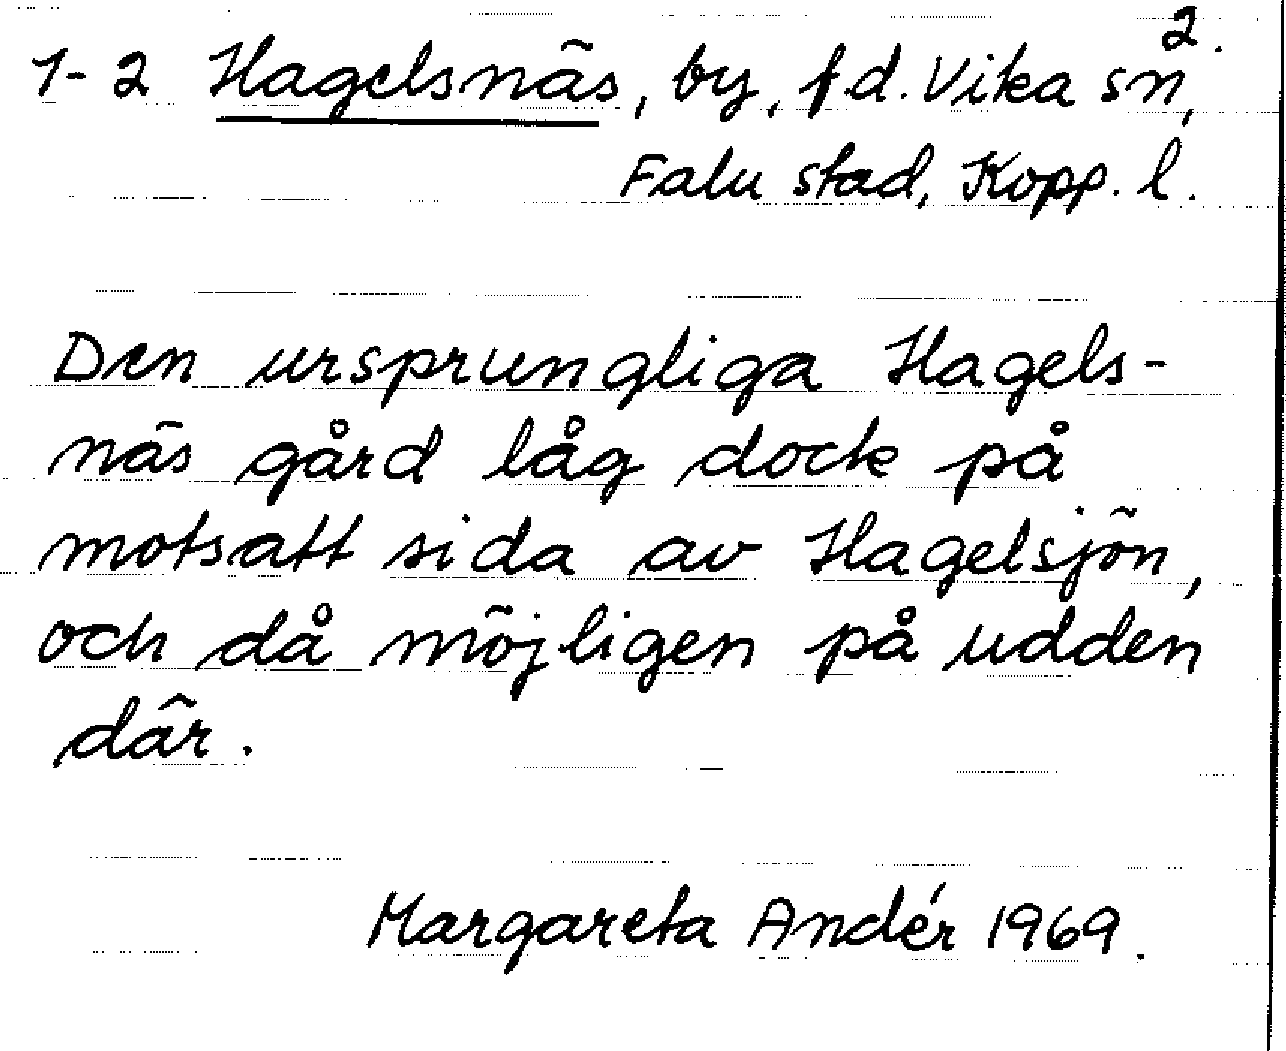 2.
1-2 Hagelsnäs, by, f.d. Vika sn,
Falu stad, Kopp. l.
Den ursprungliga Hagels-
näs gård låg dock på
motsatt sida av Hagelsjön,
och då möjligen på udden
där.
Margareta Andér 1969.